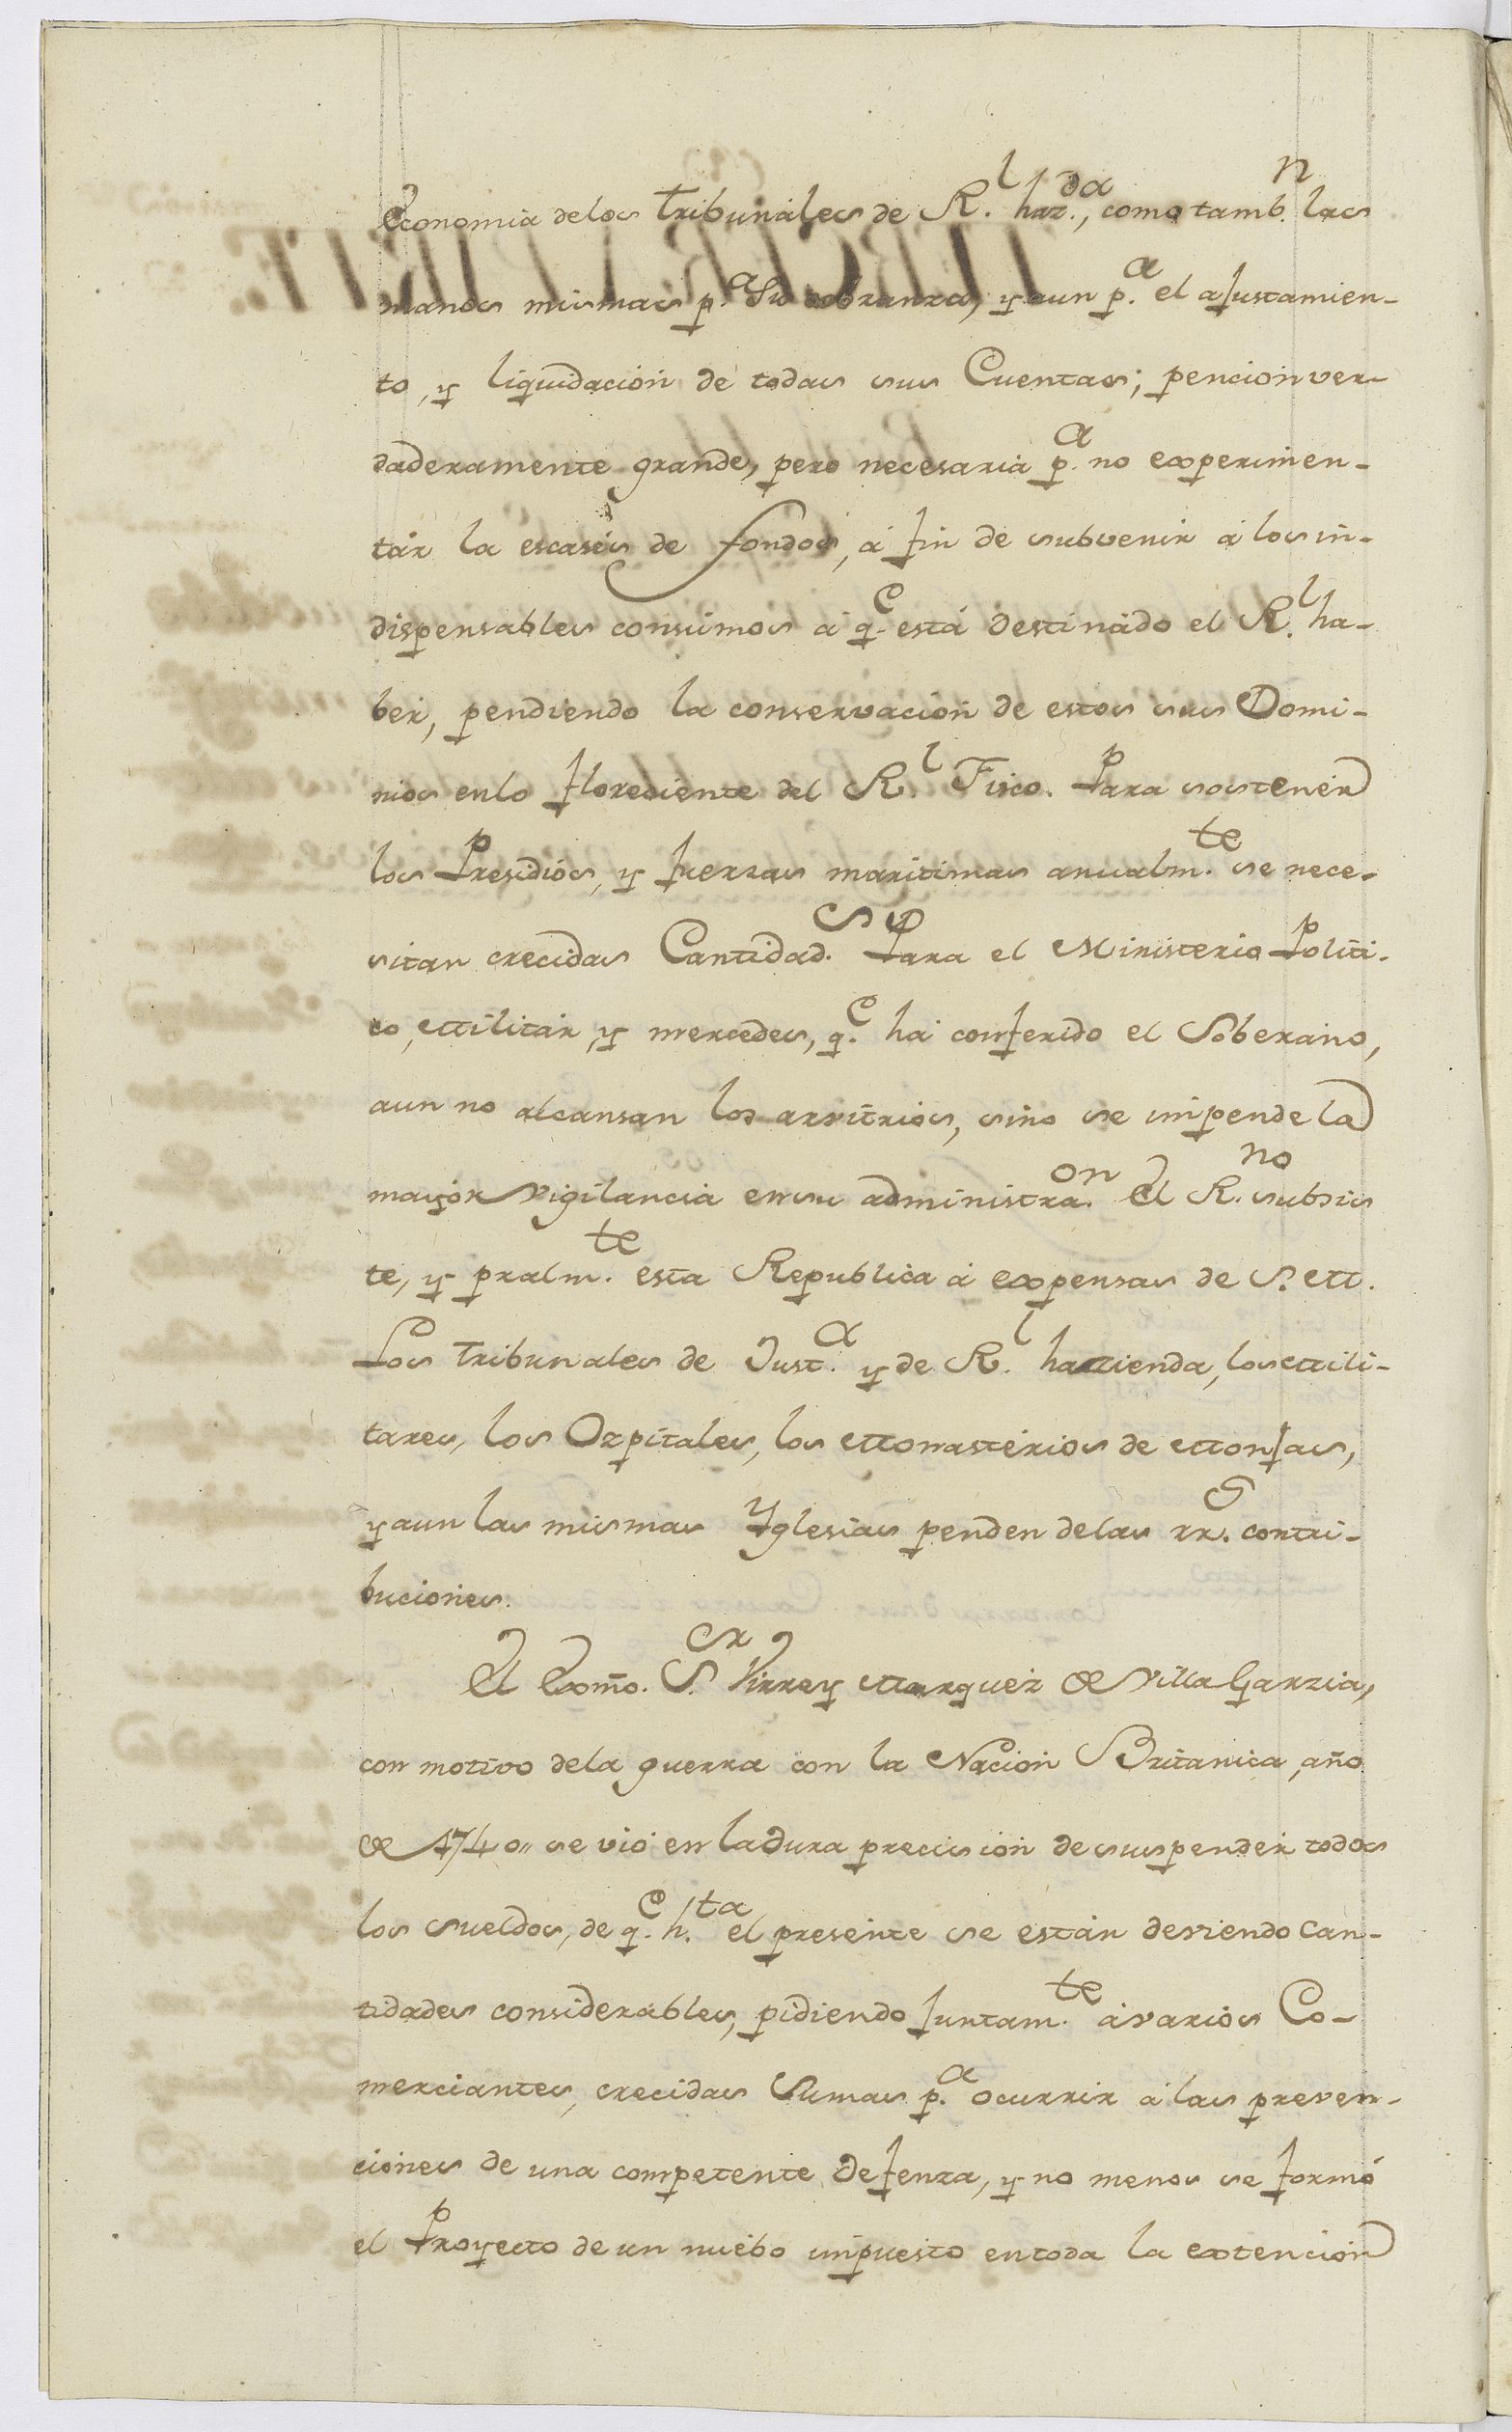 Economia delos tribunales de R.l haz.da, como tamb.n las
manos mismas p.a su cobranza, y aun p.a el ajustamien-
to, y liquidacion de todas sus Cuentas; pencion ver-
daderamente grande, pero necesaria p.a no experimen-
tar la escasés de fondos, á fin de subvenir á los in-
dispensables consumos á q.e está destinado el R.l ha-
ber, pendiendo la conservacion de estos sus Domi-
nios enlo floreciente del R.l Fisco. Para sostener
los Presidios, y fuerzas maritimas anualm.te se nece-
sitan crecidas Cantidad.s Para el Ministerio Politi-
co, Militar, y mercedes, q.e ha conferido el Soberano,
aun no alcansan los arvitrios, sino se impende la
mayor vigilancia ensu administra.on El R.no subsis
te, y pralm.te esta Republica á expensas de S. M.
Los tribunales de Just.a y de R.l hazienda, los Mili-
tares, los Ozpitales, los Monasterios de Monjas,
y aun las mismas Yglesias penden delas rr.s contri-
buciones.
El Exmo. S.or Virrey Marquez de Villa Garzia,
con motivo dela guerra con la Nacion Britanica, año
de 1740,, se vió en la dura precision de suspender todos
los sueldos, de q.e h.ta el presente se están deviendo can-
tidades considerables, pidiendo juntam.te á varios Co-
merciantes, crecidas Sumas p.a ocurrir á las preven-
ciones de una competente defenza, y no menos se formó
el Proyecto de un nuebo impuesto en toda la extencion